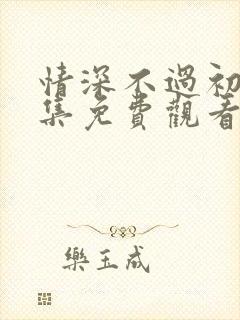 情深不過初
集免費觀看
樂玉成